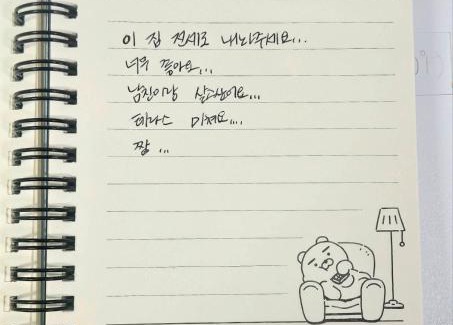 이 집 전세로 내놔주세요...
너무 좋아요...
남친이랑 살고싶어요...
테라스 미쳐요...
짱...